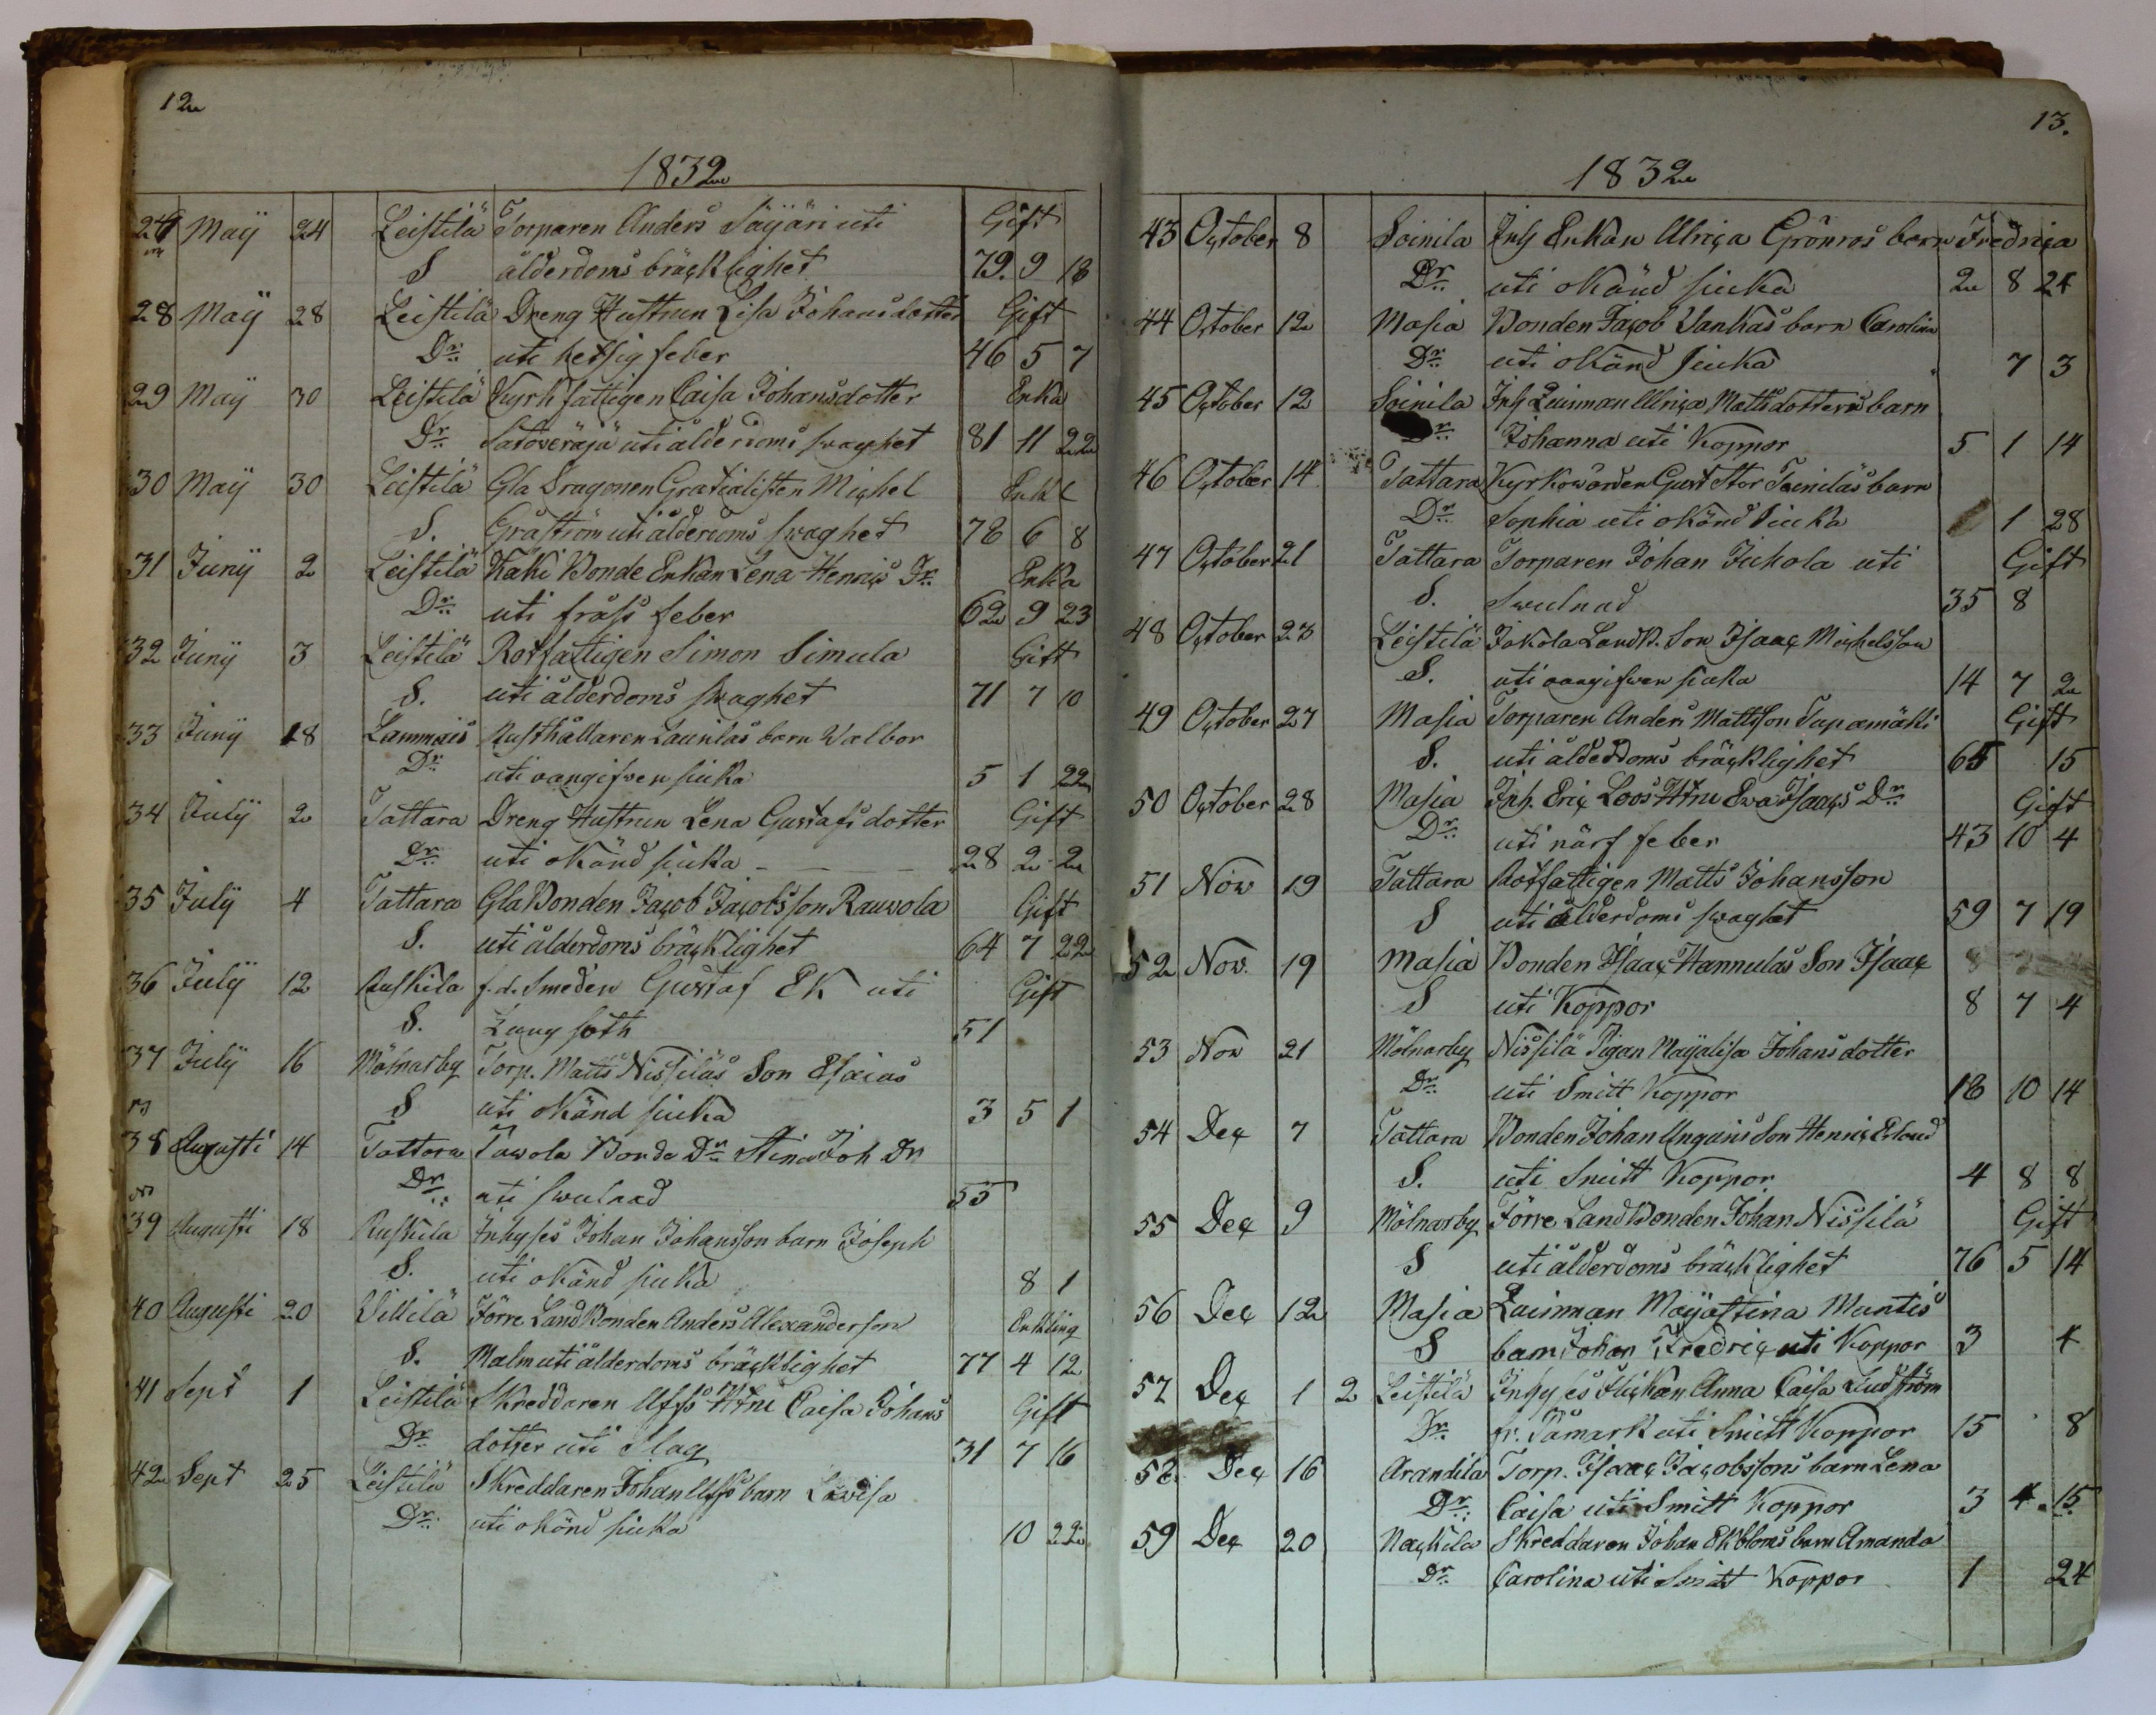 12
1832
27 Maÿ 24 Leistilä Torparen Anders Säÿäri uti Gift
S ålderdoms bräcklighet 79. 9 18
28 Maÿ 28 Leistilä Dreng Hustrun Lisa Johansdotter Gift
Dr uti hetsig feber 46 5 7
29 Maÿ 30 Leistilä Kyrkfattigen Caisa Johansdotter Enka
Dr uti ålderdoms swaghet 81 11 22
30 Maÿ 30 Leistilä Gla Dragonen Gratialisten Michel Enkl
S. Gråström uti ålderdoms swaghet 78 6 8
31 Junÿ 2 Leistilä Käki Bonde Enkan Lena Henrics Dr Enka
Dr uti fråss feber 62 9 23
32 Junÿ 3 Leistilä Rotfattigen Simon Simula Gift
S. uti ålderdoms swaghet 71 7 10
33 Junÿ 18 Lammais Rusthållaren Launilas barn Walbor
Dr uti oangifwen siuka 5 1 22
34 Julÿ 2 Tattara Dreng Hustrun Lena Gustafs dotter Gift
Dr uti okänd siuka 28 2 2
35 Julÿ 4 Tattara Gla Bonden Jacob Jacobsson Rauwola Gift
S. uti ålderdoms bräcklighet 64 7 22
36 Julÿ 12 Ruskila f.d. Smeden Gustaf EK uti Gift
S. Lung soth 51
37 Julÿ 16 Mölnarby Torp. Matts Nissiläs Son Esaias
S uti okänd siuka 3 5 1
38 Augusti 14 Tattara Tawola Bonde Dr Stina Joh Dr
Dr uti swulnad 55
39 Augusti 18 Ruskila Inhyses Johan Johansson barn Joseph
S. uti okänd siuka 8 1
40 Augusti 20 Villilä Förre LandBonden Anders Alexanderson Enkling
S. Malm uti ålderdoms bräcklighet 77 4 12
41 Sept 1 Leistilä Skreddaren Ulfs Hru Caisa Johans Gift
Dr dotter uti Slag 31 7 16
42 Sept 25 Leistilä Skreddaren Johan Ulfs barn Lowisa
Dr uti okänd siuka 10 22
13.
1832
43 October 8 Soinila Inh Enkan Ulrica Grönros barn Fredrica
Dr uti okänd siuka 2 8 24
44 October 12 Masia Bonden Jacob Yankas barn Carolina
Dr uti okänd siuka 7 3
45 October 12 Soinila Inh Quinnan Ulrica Mattsdotters barn
Dr Johanna uti Koppor 5 1 14
46 October 14 Tattara Kyrkowärden Gust Stor Toinilas barn
Dr Sophia uti okänd siuka 1 28
47 October 21 Tattara Torparen Johan Juhola uti Gift
S. Swulnad 35 8
48 October 23 Leistilä Jakola Landb. Son Isaac Michelsson
S. uti oangifwen siuka 14 7 2
49 October 27 Masia Torparen Anders Mattsson Tapamäki Gift
S. uti ålderdoms bräcklighet 65 15
50 October 28 Masia Inh. Eric Loos Htru Ewa Isaacs Dr Gift
Dr uti närf feber 43 10 4
51 Now 19 Tattara Rotfattigen Matts Johansson
S uti ålderdoms swaghet 59 7 19
52 Now. 19 Masia Bonden Isaac Hannulas Son Isaac
S uti Koppor 8 7 4
53 Now 21 Mölnarby Nissilä Pigan Mayalisa Johansdotter
Dr uti Smitt Koppor 18 10 14
54 Dec 7 Tattara Bonden Johan Ungais Son Henric Erland
S. uti Smitt Koppor 4 8 8
55 Dec 9 Mölnarby Förre LandBonden Johan Nissilä Gift
S uti ålderdoms bräcklighet 76 5 14
56 Dec 12 Masia Quinnan Mayastina Muntis
S barn Johan Fredric uti Koppor 3 4
57 Dec 12 Leistilä Inhyses Flickan Anna Caisa Lindström
Dr fr. Påmark uti Smitt Koppor 15 8
58 Dec 16 Arandila Torp. Isaac Jacobssons barn Lena
Dr Caisa uti Smitt Koppor 3 4 15
59 Dec 20 Nackila Skreddaren Johan Ekbloms barn Amanda
Dr Carolina uti Smitt Koppor 1 24